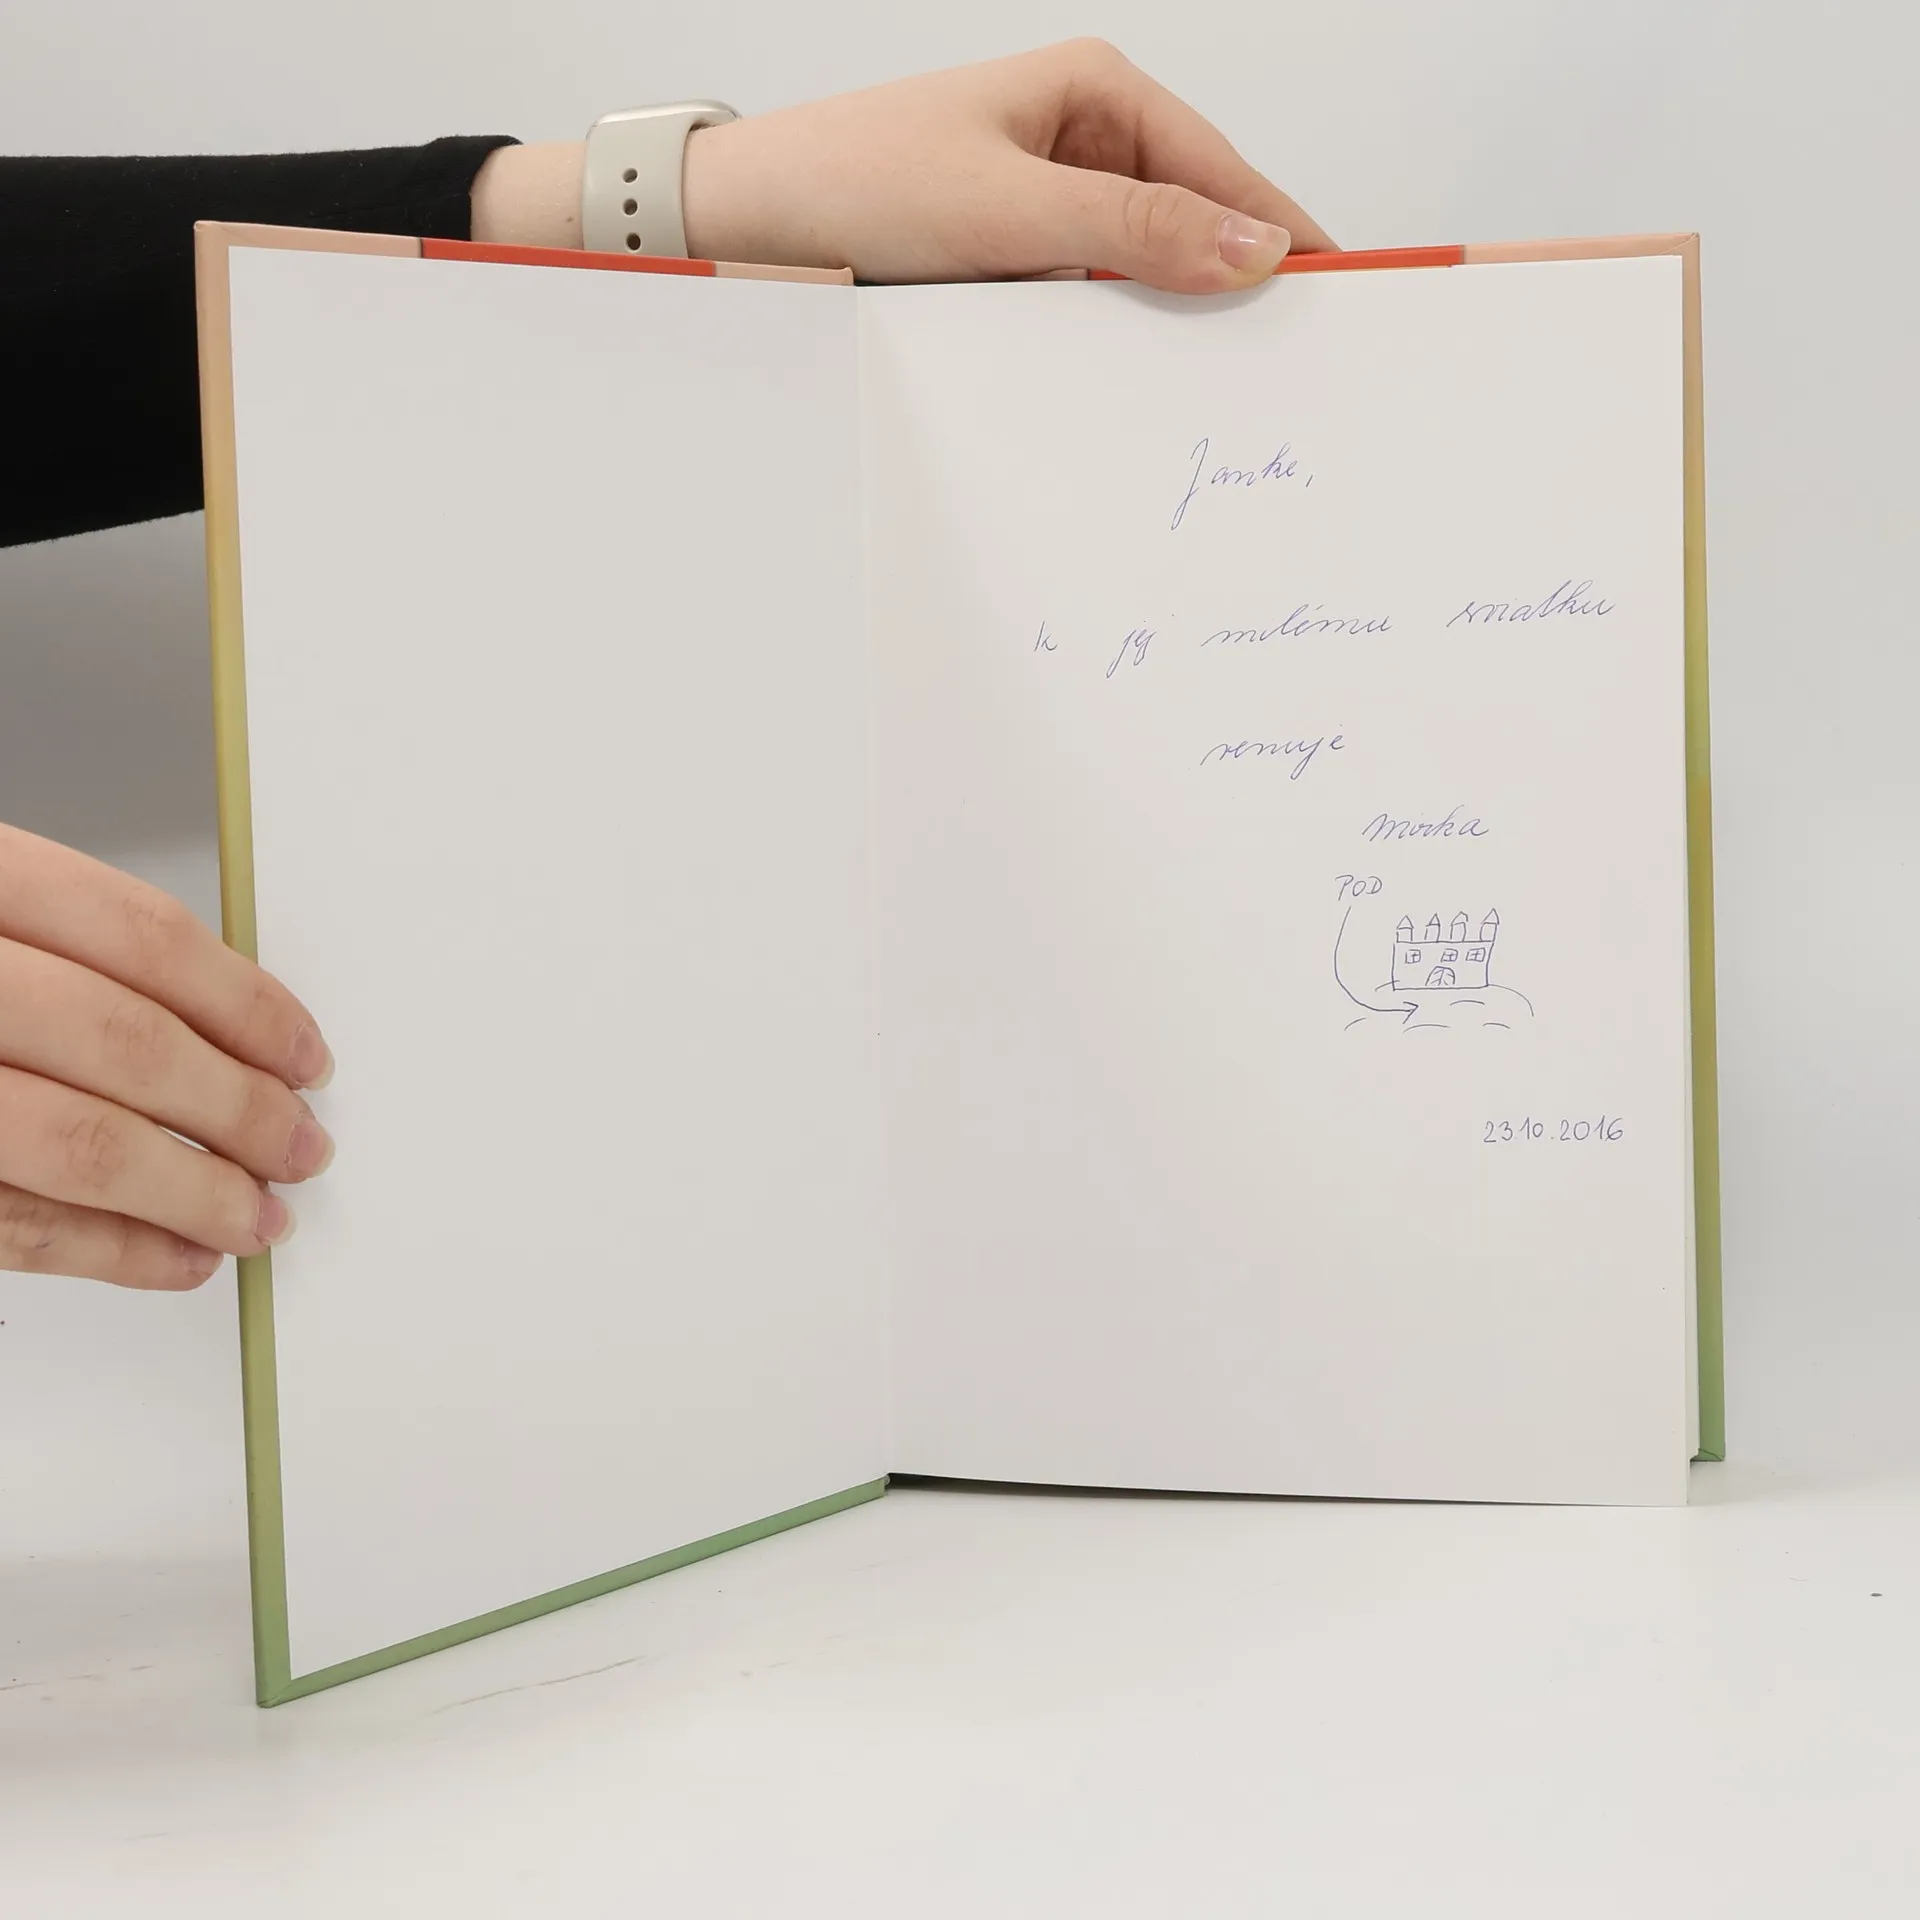 Janke,
k jej milému sviatku
venuje
Mirka
POD
23.10.2016